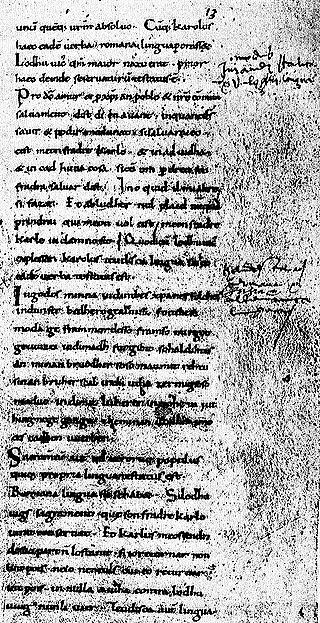 13
unu quecq; urm absoluo. Cuq; karolus
haec eade uerba romana lingua perorasset
Lodhuuic qm maior natu erat prior
haec deinde se seruaturu testatus e.
Pro dō amur & p xpian poblo & nrō comun
saluament. dist di in auant. inquantds
sauir & podir me dunat. si saluaraieo.
cist meon fradre karlo. & in adiudha
& in cad huna cosa. sicu om p dreit son
fradra saluar dist. Ino quid il mi altre
si fazet. Et ab ludher nul plaid nuqua
prindrai qui meon uol cist meon fradre
karle in damno sit. Quod cu lodhuuic
explesset. karolus teudisca lingua sic ec
eade uerba testatus est.
In godes minna indinthes xpanes folches
ind unser bedhero gealtnissi. fonthese
moda ge frammordesso framso mir got
geuuizci indi madh furgibit sohaldih tes
an minan bruodher soso man mit rehtu
sinan bruher scal inthi utha zermig so so
maduo. indi mit luheren in no hein iut
hing nege gango. zhe minan uuillon imo
ce scadhen uuerhen.
Sacramentu aut qd utroruq; populus
quiq; propria lingua testatus est.
Romana lingua sic se habet. Silodhu
uigs sagrament. que son fradre karlo
iurat conseruat. Et karlus meos sendra
desuo partn lostanit. si ioreturnar non
lint pois. neio neneuls cui eo returnar
int pois. in nulla aiudha contra lodhu
uuig nun li iuer. Teudisca aut lingua